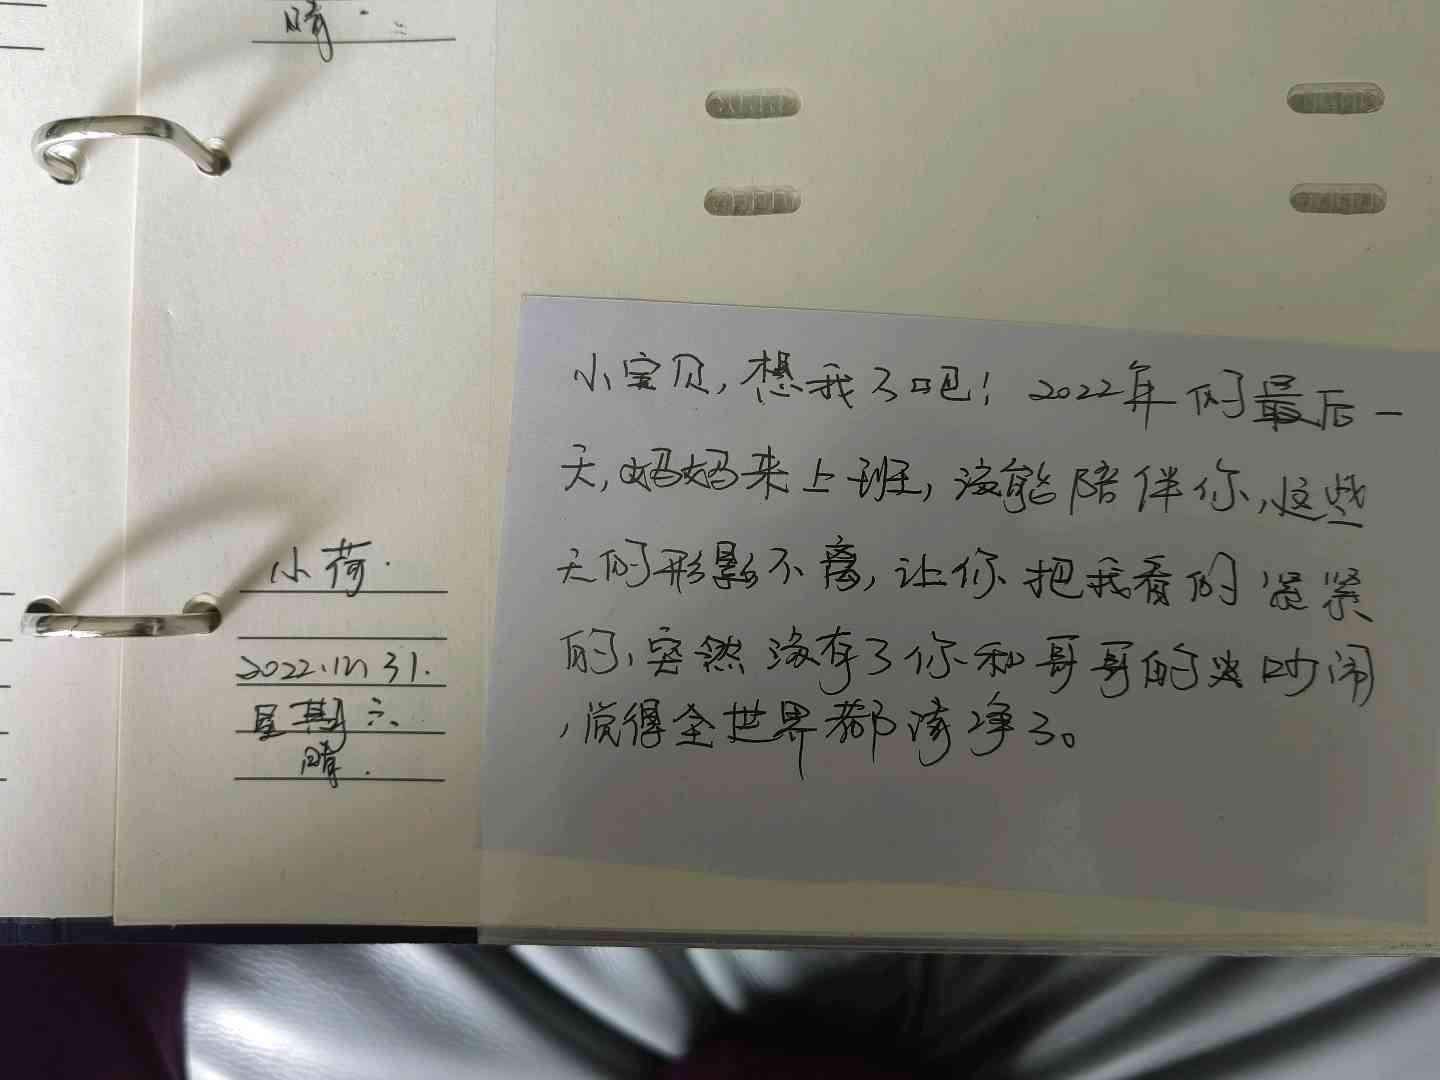 晴.
小荷.
2022.12月31.
星期六
晴.
小宝贝,想我了吧!2022年的最后一
天,妈妈来上班,没能陪伴你,这些
天的形影不离,让你把我看的紧紧
的,突然没有了你和哥哥的吵闹
,觉得全世界都清净了。